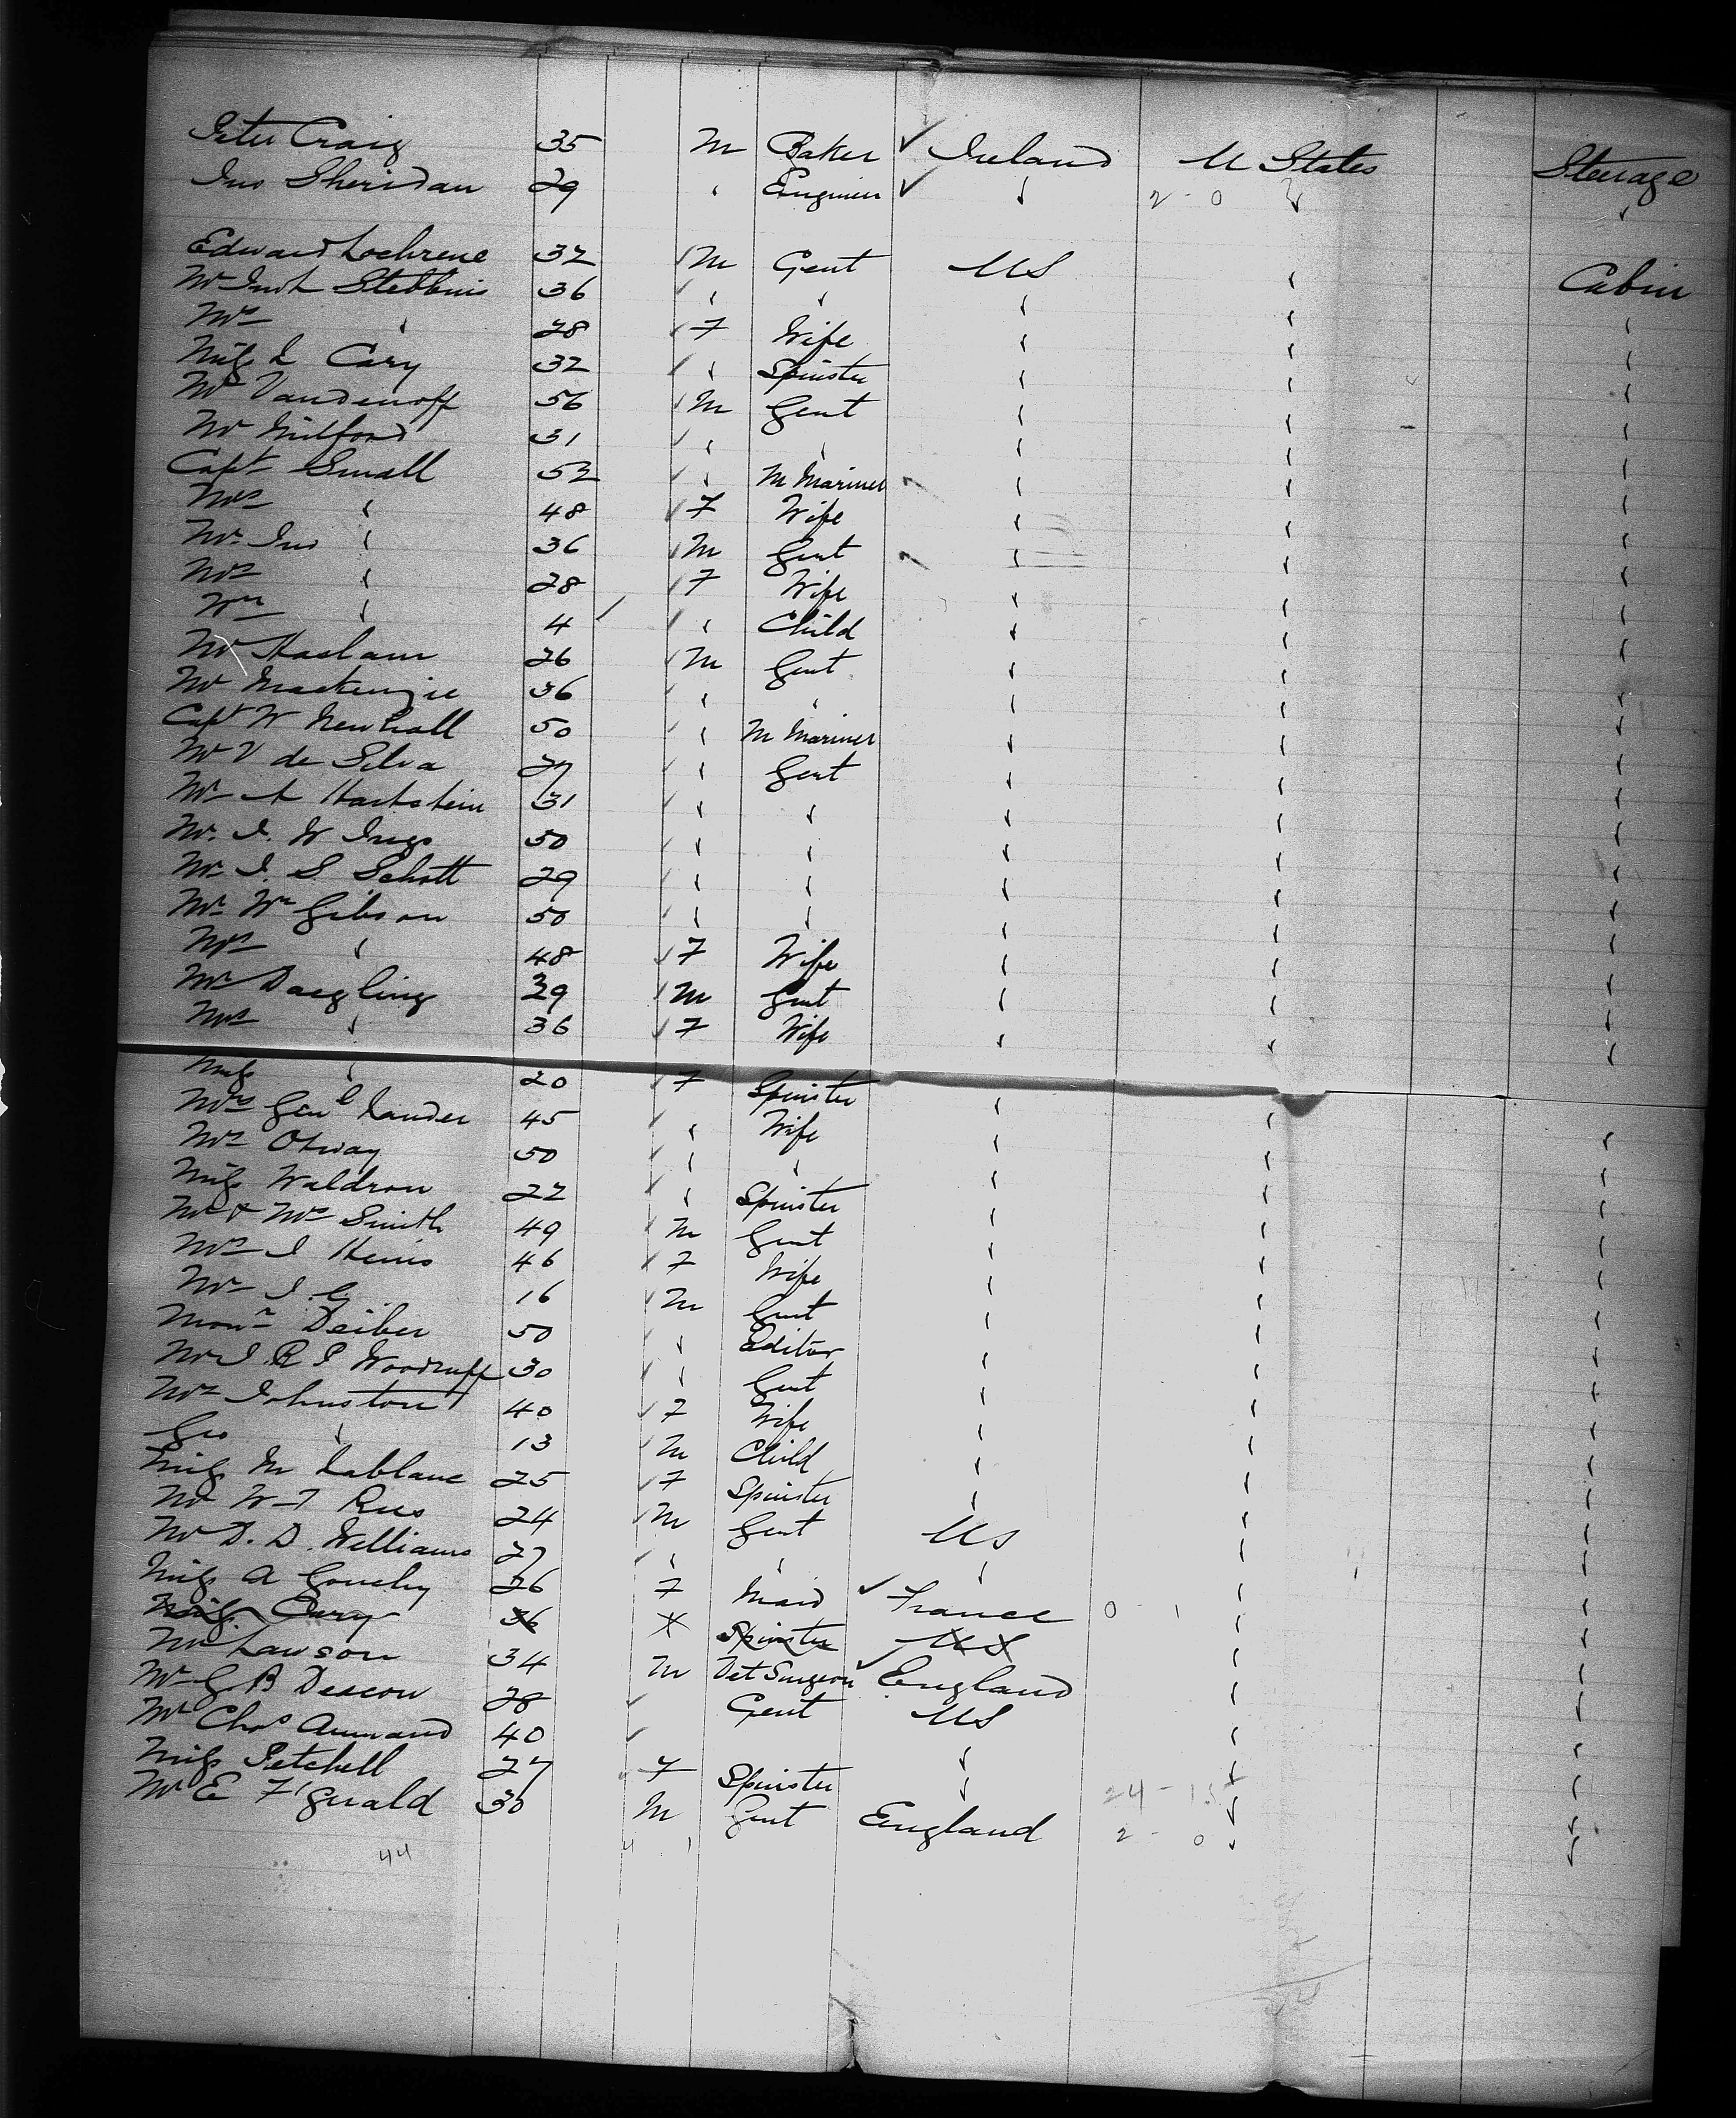 Peter Craig 35 M Baker ✓ Ireland U States Steerage
Jno Sheridan 29 " Engineer ✓ " 2 - 0 " "
Edward Lochrene 32 M Gent US " Cabin
Mr Stebbins 36 " " " " "
Mrs " 28 F Wife " " "
Miss L Cary 32 " Spinster " " "
Mr Vandenoff 56 M Gent " " "
Mr Milford 31 " " " " "
Capt Small 52 " M Mariner " " "
Mrs " 48 F Wife " " "
Mr Jno " 36 M Gent " " "
Mrs " 28 F Wife " " "
Wm " 4 " Child " " "
Mr Haslam 26 M Gent " " "
Mr Mackenzie 36 " " " " "
Capt W Newhall 50 " M Mariner " " "
Mr V de Silva 27 " Gent " " "
Mr A Hartstein 31 " " " " "
Mr J. W 50 " " " " "
Mr J. S. Schott 29 " " " " "
Mr Wm Gibson 50 " " " " "
Mrs " 48 F Wife " " "
Mr Daegling 39 M Gent " " "
Mrs " 36 F Wife " " "
Miss " 20 F Spinster " " "
Mrs Genl Lander 45 " Wife " " "
Mrs Otway 50 " " " " "
Miss Waldron 22 " Spinster " " "
Mr & Mrs Smith 49 M Gent " " "
Mrs J 46 F Wife " " "
Mr J. G. 16 M Gent " " "
Monr Deiber 50 " Editor " " "
Mr J. R P Woodruff 30 " Gent " " "
Mrs Johnston 40 F Wife " " "
Geo " 13 M Child " " "
Miss M Lablanc 25 F Spinster " " "
Mr W T Rees 24 M Gent US " "
Mr D. D. Williams 27 " " " " "
Miss A 26 F Maid ✓ France 0 1 " "
Miss Cary 36 X Spinster US
Mr Lawson 34 M Vet Surgeon ✓ England " "
Mr G. B Deacon 28 Gent US " "
Mr Chas 40 " " "
Miss Petchell 27 F Spinster " 24 - 15 " "
Mr E F'Gerald 30 M Gent England 2 - 0 " "
44 4 1